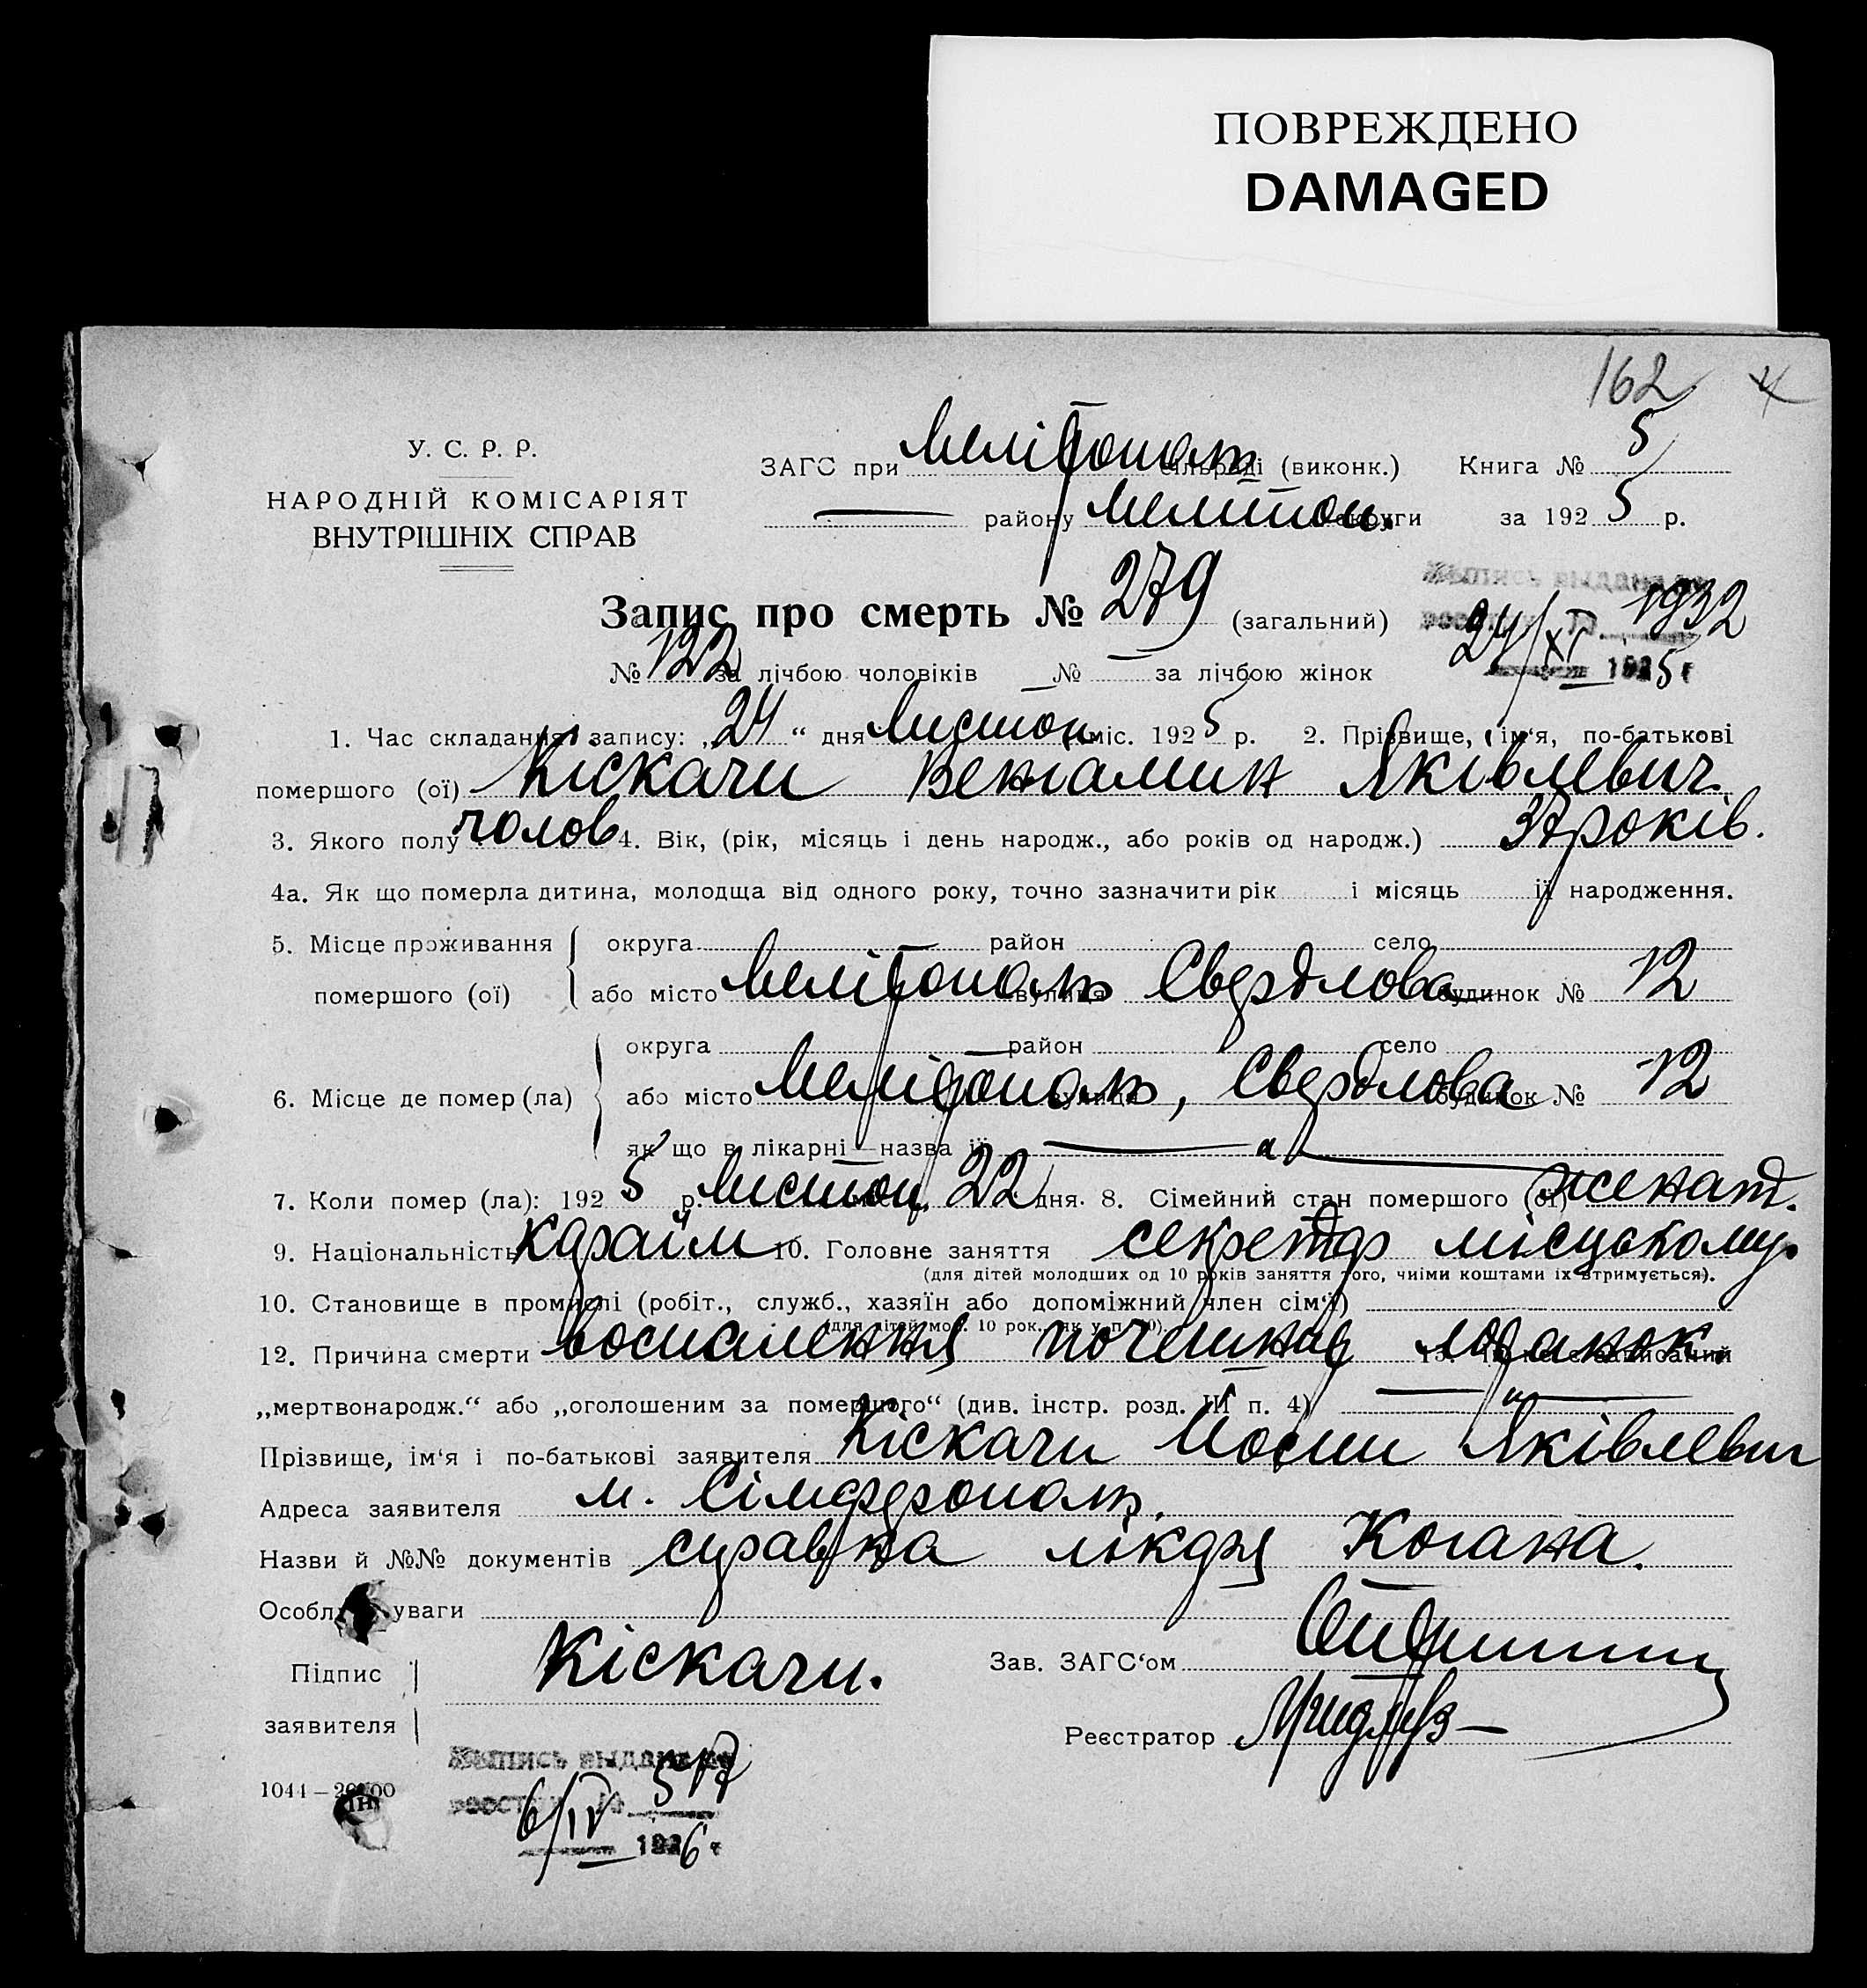 ПОВРЕЖДЕНО
DAMAGED
162
У. С. Р. Р.
НАРОДНІЙ КОМІСАРІЯТ
ВНУТРІШНІХ СПРАВ
ЗАГС при Мелітополь сільраді (виконк.) Книга № 5
— району Мелитоп. округи за 1925 р.
Запис про смерть № 279 (загальний)
№ 122 за лічбою чоловіків № — за лічбою жінок
Выпись выдана по
реестру № 1932
24/XI 1925 г
1. Час складання запису: „24“ дня Листоп. міс. 1925 р. 2. Прізвище, ім‘я, по-батькові
помершого (ої) Кіскачи Веніамин Яківлевич.
3. Якого полу чолов 4. Вік, (рік, місяць і день народж., або років од народж.) 37 років.
4а. Як що померла дитина, молодща від одного року, точно зазначити рік і місяць її народження.
5. Місце проживання помершого (ої) округа район село
або місто Мелітополь вулиця Свердлова будинок № 12
6. Місце де помер (ла) округа район село
або місто Мелітополь, вулиця Свердлова будинок № 12
як що в лікарні—назва її —
7. Коли помер (ла): 1925 р. Листоп. 22 дня. 8. Сімейний стан помершого (ої) женат.
9. Національність Караїм 10. Головне заняття секретар місцькому.
(для дітей молодших од 10 років заняття того, чиїми коштами їх втримується).
10. Становище в промислі (робіт., служб., хазяїн або допоміжний член сім‘ї)
(для дітей мол. 10 рок. як у п. 10).
12. Причина смерти воспалення почешних лоханок.
„мертвонародж.“ або „оголошеним за помершого“ (див. інстр. розд. III п. 4) —
Прізвище, ім‘я і по-батькові заявителя Кіскачи Йосип Яківлевич
Адреса заявителя м. Сімферополь.
Назви й №№ документів справка лікаря Когана.
Особл уваги
Підпис заявителя Кіскачи.
Зав. ЗАГС‘ом
Реєстратор
Выпись выдана по
реестру № 517
6/IV 1926 г
1044 —